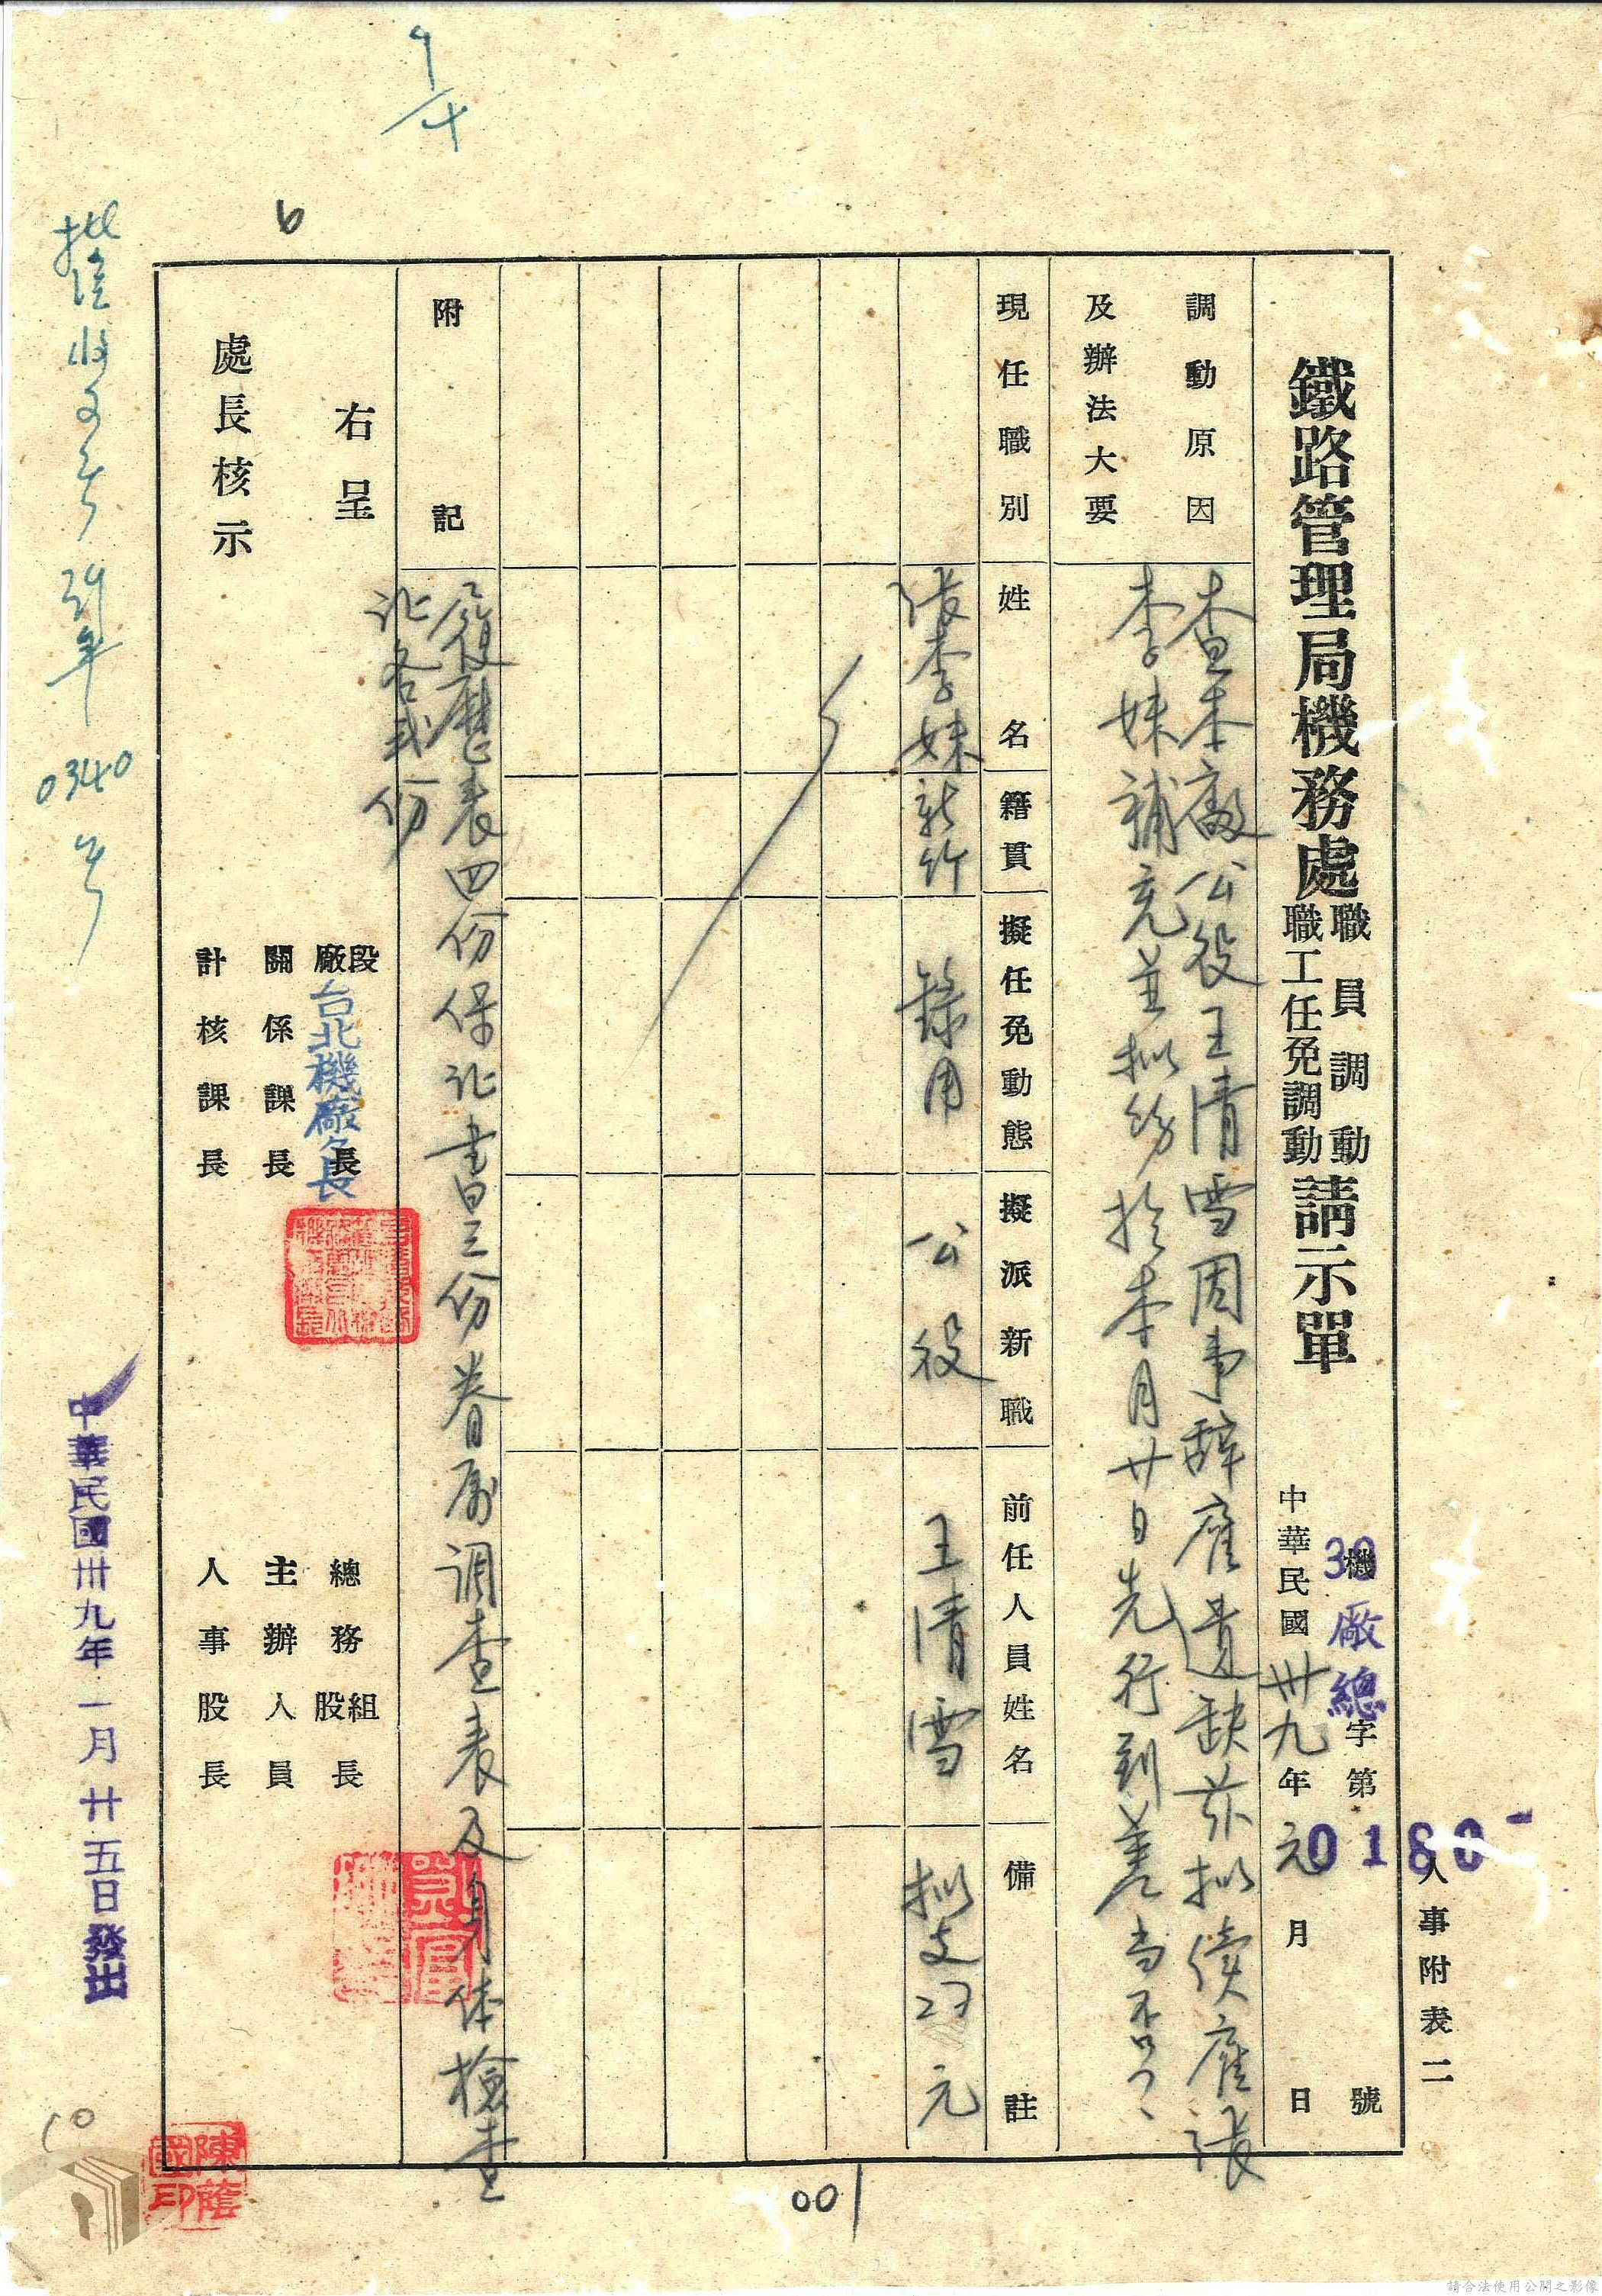 人事附表二
鐵路管理局機務處職員調動職工任免調動請示單
39機廠總字第0180號
中華民國卅九年元月 日
調動原因
及辦法大要
查本廠公役王清雪因事辞雇遺缺茲拟續雇張
李妹補充並拟飭於本月廿日先行到差當否
現任職別
姓名
籍貫
擬任免動態
擬派新職
前任人員姓名
備註
張李妹
新竹
錄用
公役
王清雪
拟支 元
附記
履歷表四份保证書三份眷屬调查表及身体檢查
证各弍份
右呈
處長核示
段廠長
台北機廠廠長
關係課長
計核課長
總務組股長
主辦人員
人事股長
收文 39年0340号
中華民國卅九年一月廿五日發出
陳蔭國印
9/4
6
001
10
請合法使用公開之影像